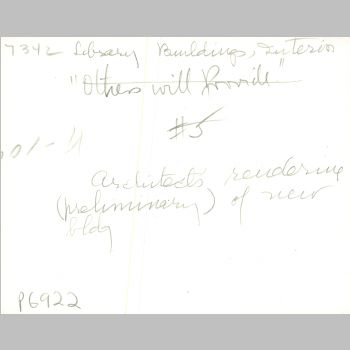 7342 Library Buildings, Interio
"Others will Provide"
#5
01-4
Architects rendering
(preliminary) of new
bldg
P6922